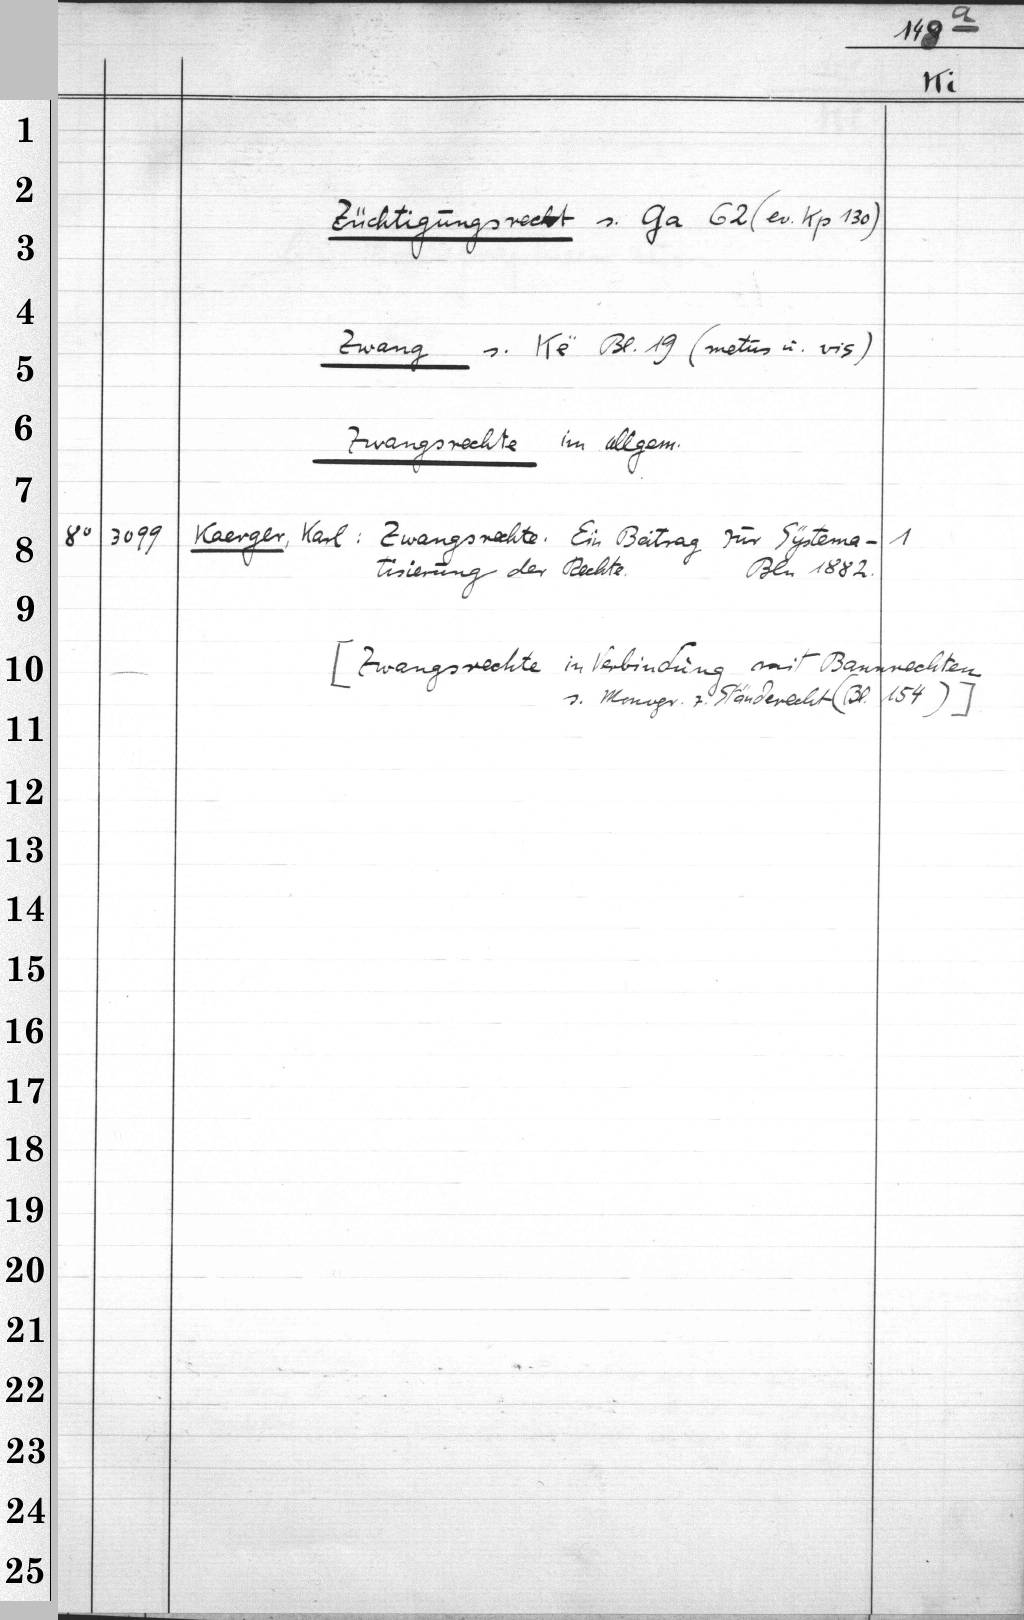 148 a
Ki
1
2
Züchtigungsrecht s. Ga 62 (ev. Kp 130)
3
4
Zwang s. Kë Bl. 19 (metus u. vis)
5
6
Zwangsrechte im allgem.
7
8° 3099 Kaerger, Karl: Zwangsrechte. Ein Beitrag zur Systema- 1
8
tisierung der Rechte. Bln 1882.
9
10
[Zwangsrechte in Verbindung mit Bannrechten
s. Monogr. z. Ständerecht (Bl. 154)]
11
12
13
14
15
16
17
18
19
20
21
22
23
24
25